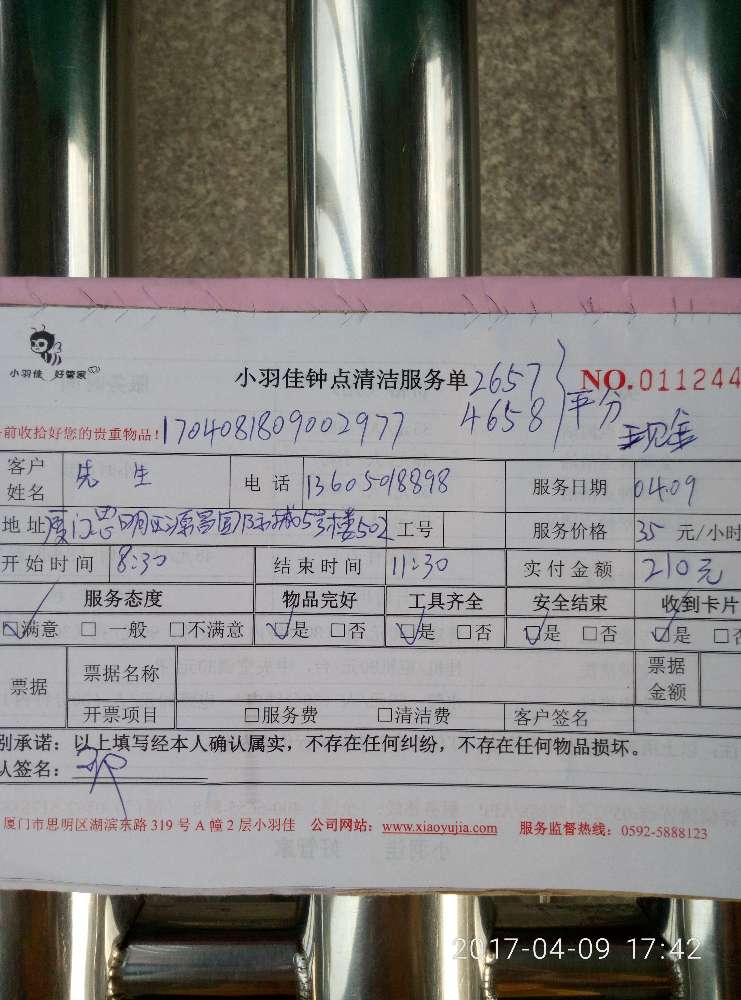 小羽佳 好管家
小羽佳钟点清洁服务单 2657 NO.011244
4658 平分 现金
前收拾好您的贵重物品! 1704081809002977
客户姓名 先生 电话 13605018898 服务日期 04.09
地址 厦门思明区源昌国际城5号楼502 工号 服务价格 35 元/小时
开始时间 8:30 结束时间 11:30 实付金额 210元
服务态度 物品完好 工具齐全 安全结束 收到卡片
☑满意 □一般 □不满意 ☑是 □否 ☑是 □否 ☑是 □否 ☑是 □否
票据 票据名称 票据金额
开票项目 □服务费 □清洁费 客户签名
别承诺：以上填写经本人确认属实，不存在任何纠纷，不存在任何物品损坏。
人签名：
厦门市思明区湖滨东路 319 号 A 幢 2 层小羽佳 公司网站：www.xiaoyujia.com 服务监督热线：0592-5888123
2017-04-09 17:42